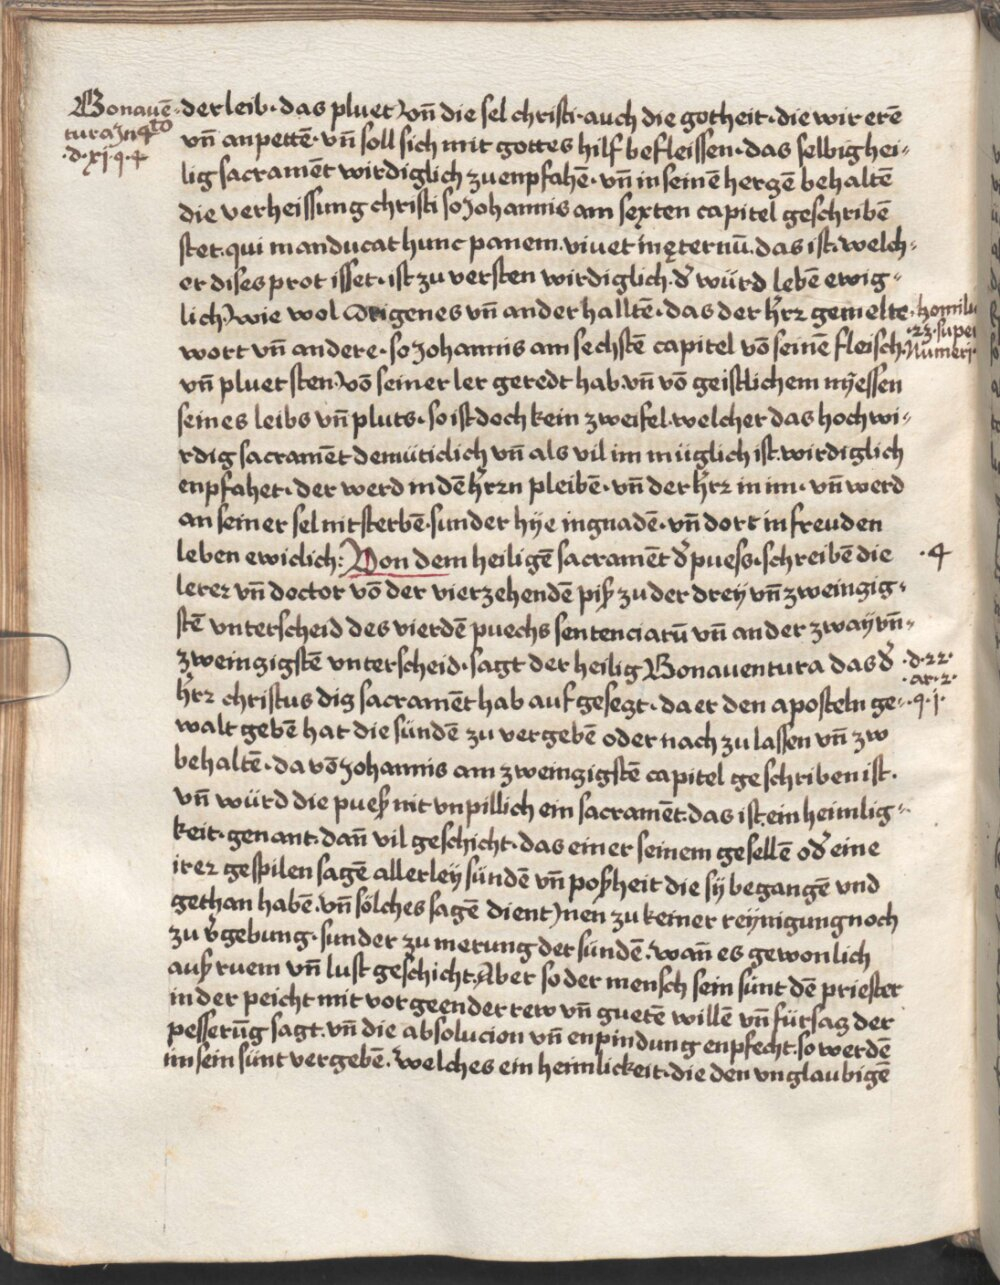 Bonauē-
tura Jn 4to
.d.xj.q.4
der leib. das pluet vn̄ die sel christi. auch die gotheit. die wir erē
vn̄ anpettē. vn̄ soll sich mit gottes hilf befleissen. das selbig hei-
lig sacramēt wirdiglich zu enpfahē. vn̄ in seinē hertzē behaltē
die verheissung christi so Johannis am sexten capitel geschribē
stet. qui manducat hunc panem. vivet in ęternū. das ist. welch-
er dises prot isset. ist zu versten wirdiglich. d̄ würd lebē ewig-
lich) wie wol Origenes vn̄ ander halltē. das der h̄rr gemelte
.homili
.23. super
Numeri.
wort vn̄ andere. so Johannis am sechstē capitel vō seinē fleisch
vn̄ pluet sten) vō seiner ler geredt hab. vn̄ vō geistlichem nÿessen
seines leibs vn̄ pluts. so ist doch kein zweifel. welcher das hochwi-
rdig sacramēt demüticlich vn̄ als vil im müglich ist. wirdiglich
enpfahet. der werd in dē h̄rrn pleibē. vn̄ der h̄rr in im. vn̄ werd
an seiner sel nit sterbē. sunder hÿe in gnadē. vn̄ dort in freuden
leben ewiclich: Von dem heiligē sacramēt d̄ puess. schreibē die
.4
lerer vn̄ doctor vō der vierzehendē piß zu der dreÿ vn̄ zweingig-
stē vnterscheid des vierdē puechs sentenciarū vn̄ an der zwaÿ vn̄-
zweinzigstē vnterscheid. sagt der heilig Bonauentura das d̄
.d.22.
.ar.2.
.q.j.
h̄rr christus dis sacramēt hab auf gesezt. da er den aposteln ge-
walt gebē hat die sündē zu vergebē oder nach zu lassen vn̄ zw
behaltē. da vō Johannis am zweinzigstē capitel geschriben ist.
vn̄ würd die pueß nit vnpillich ein sacramēt. das ist. ein heimlig-
keit. genant. dan̄ vil geschicht. das einer seinem gesellē od̄ eine
irer gespilen sagē allerleÿ sündē vn̄ poßheit die sÿ begangē vnd
gethan habē. vn̄ sölches sagē dient Jnen zu keiner reÿnigung noch
zu v̄gebung. sunder zu merung der sündē. wan̄ es gewonlich
auß ruem vn̄ lust geschicht. Aber so der mensch sein sünt dē priester
in der peicht mit vorgeender rew vn̄ guetē willē vn̄ fürsaz der
pesserūg sagt. vn̄ die absolucion vn̄ enpindung enpfecht. so werdē
im sein sünt vergebē. welches ein heimlickeit. die den vnglaubigē